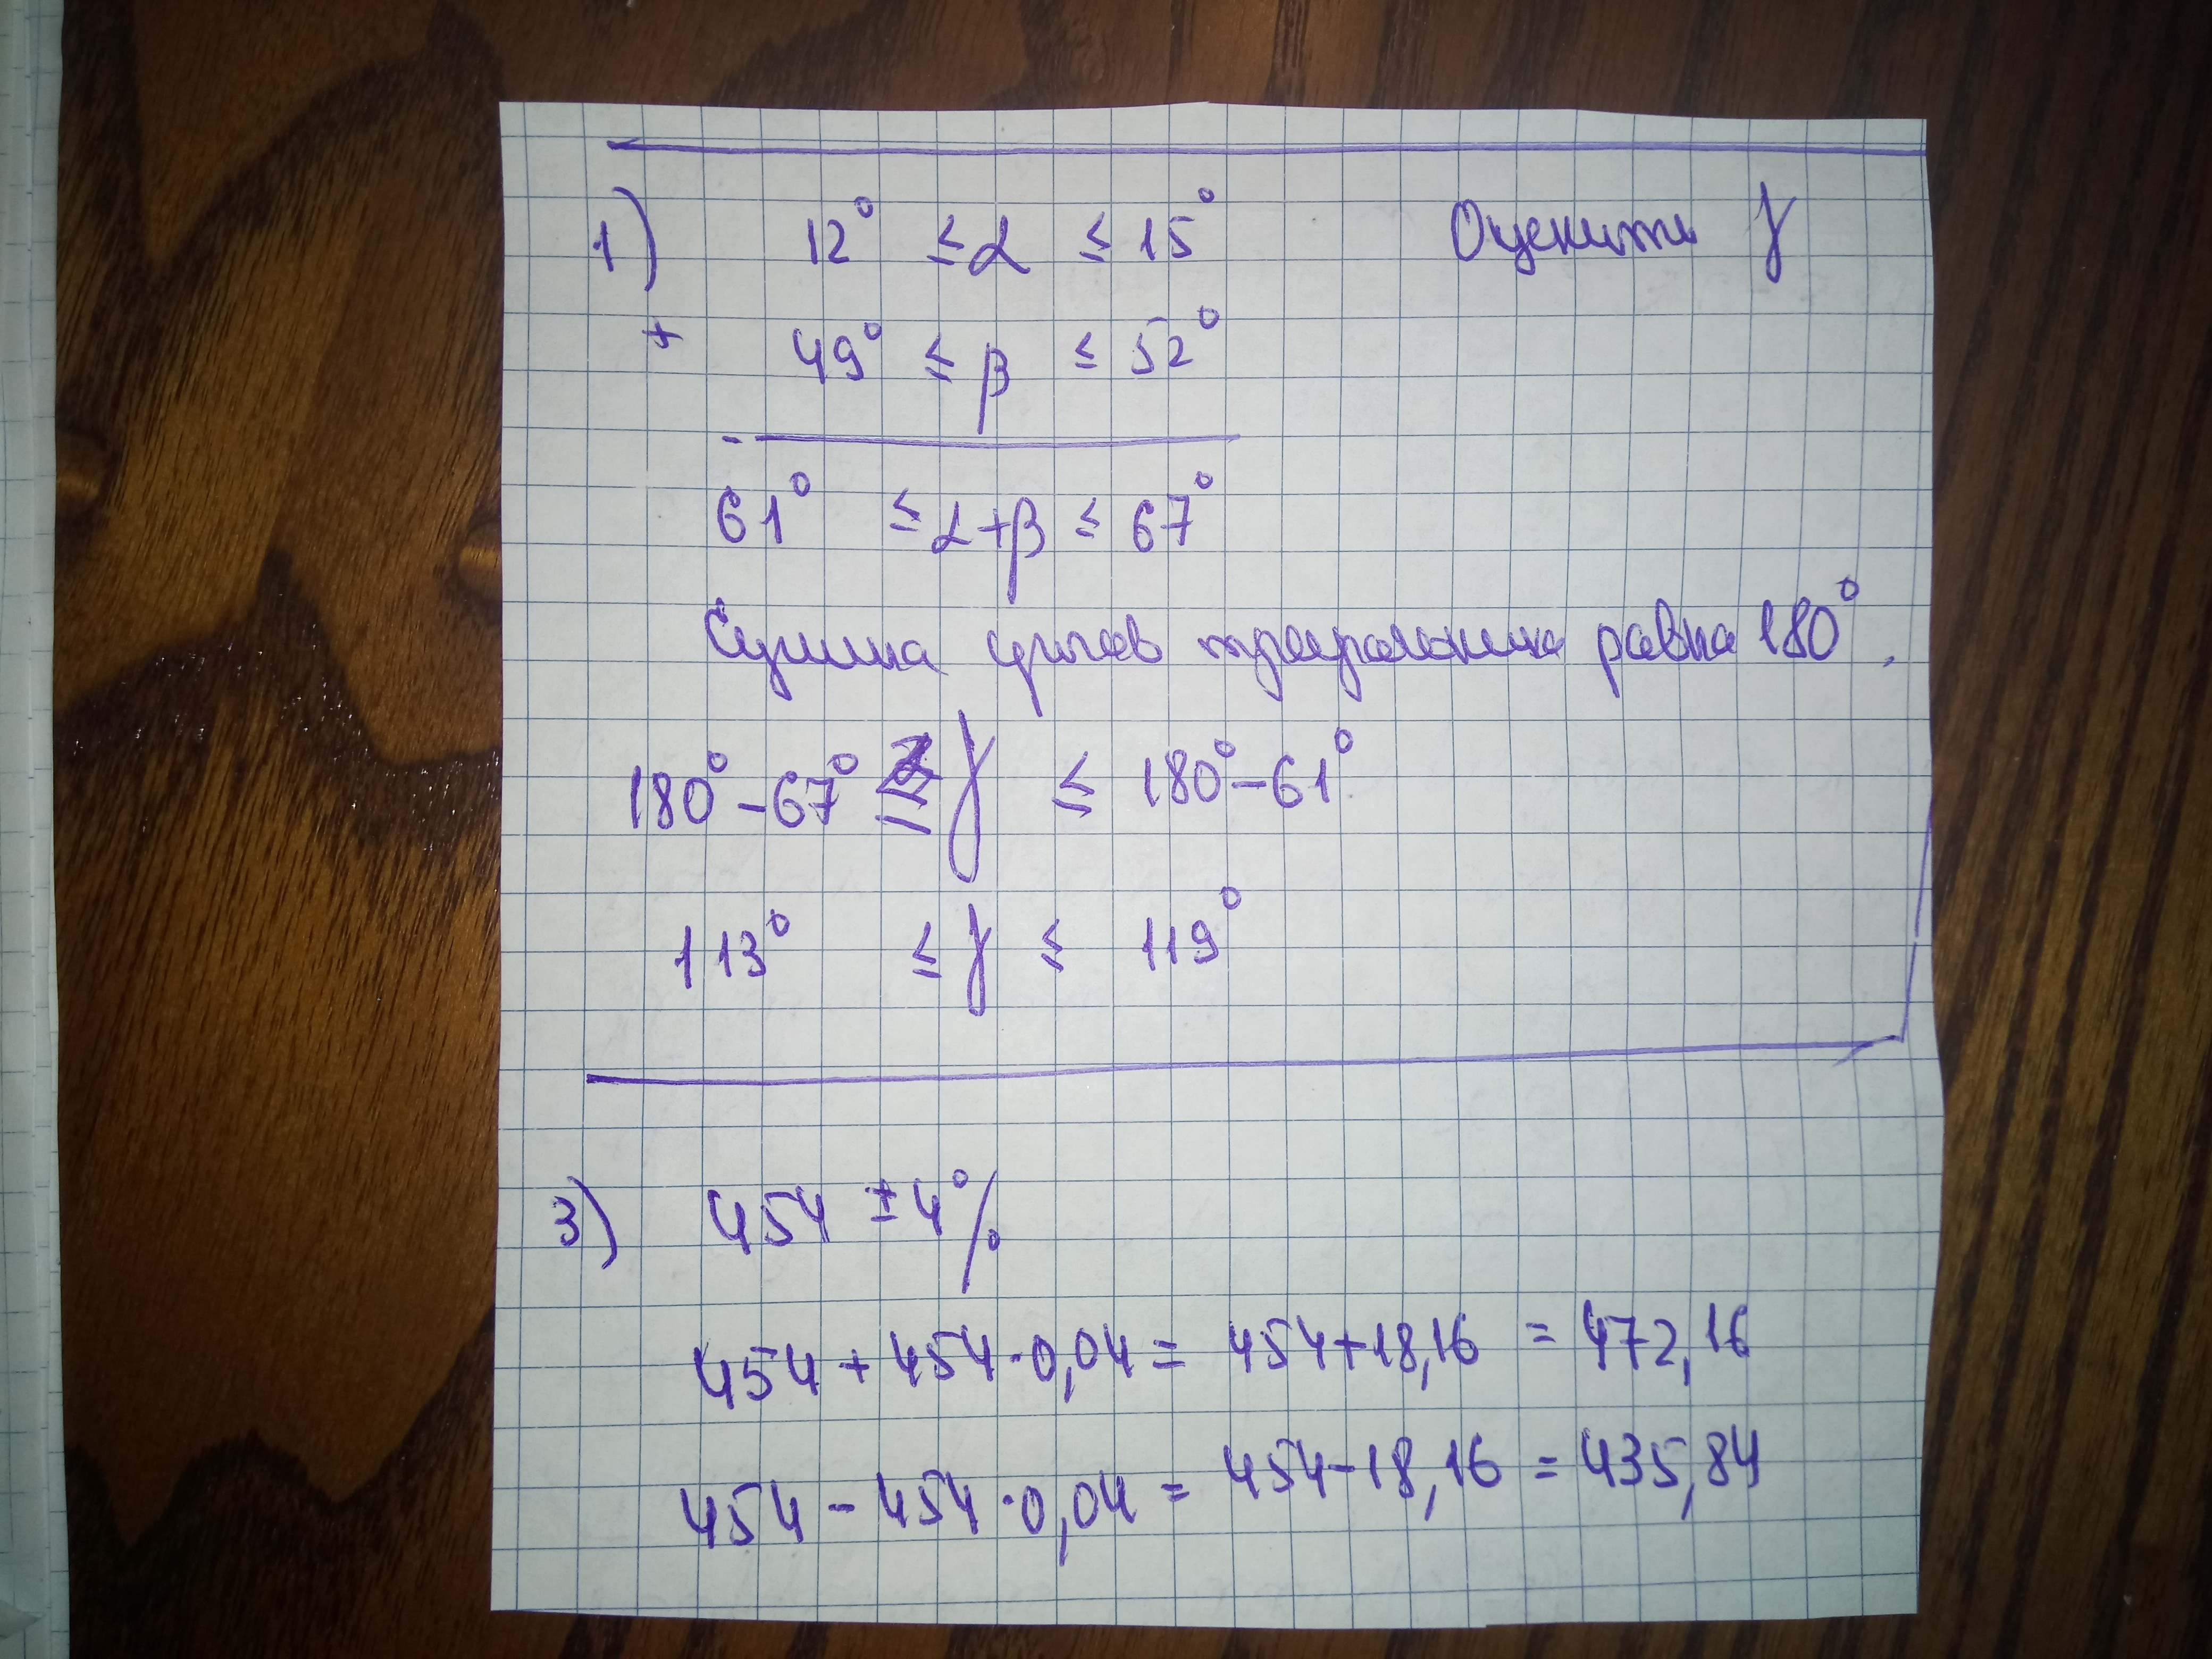 1) 12° ≤ α ≤ 15° Оценить γ
+ 49° ≤ β ≤ 52°
61° ≤ α+β ≤ 67°
Сумма углов треугольника равна 180°.
180°-67° ≤ γ ≤ 180°-61°
113° ≤ γ ≤ 119°
3) 454 ± 4%
454 + 454·0,04 = 454+18,16 = 472,16
454 - 454·0,04 = 454-18,16 = 435,84